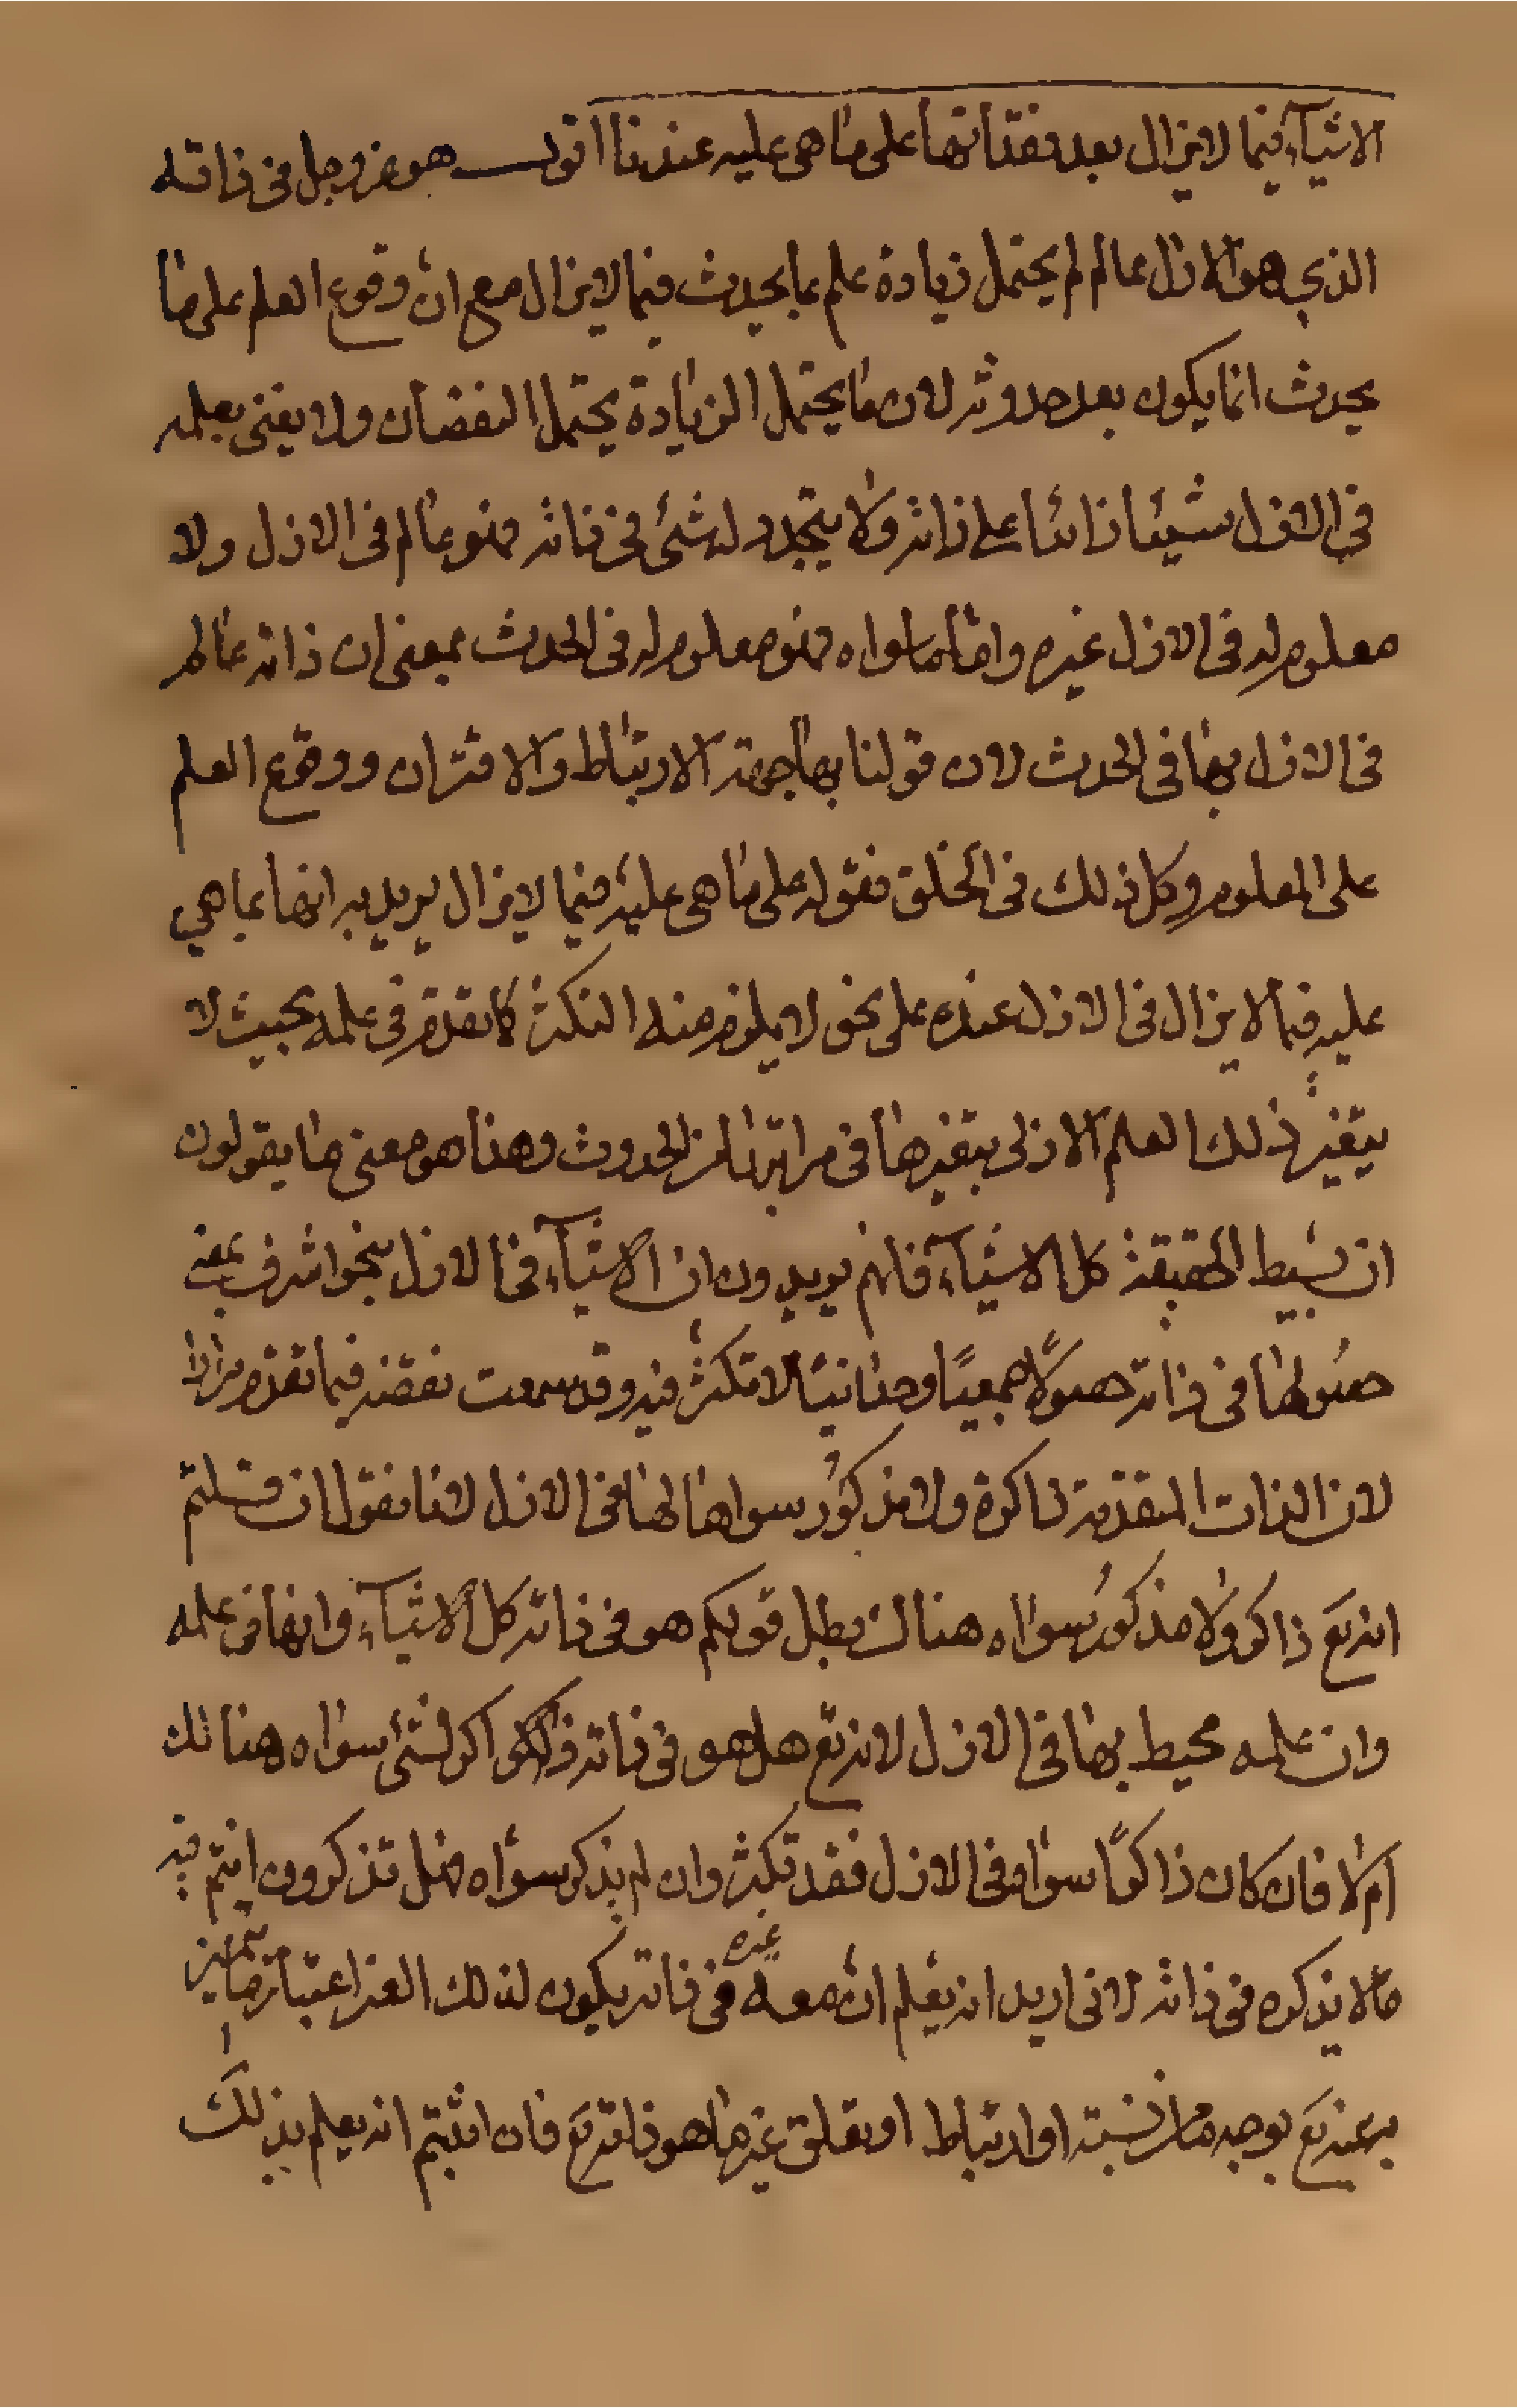 الاشيآء فيما لايزال بعد فقدانها على ما هى عليه عندنا اقول هو عز وجل فى ذاته
الذى هو الازل عالم لم يحتمل زيادة علم بما يحدث فيما لايزال مع ان وقوع العلم على ما
يحدث انما يكون بعد حدوثه لان ما يحتمل الزيادة يحتمل النقصان ولا يعنى بعلمه
فى الازل شيئا زائدا على ذاته ولا يتجدد له شئ فى ذاته فهو عالم فى الازل ولا
معلوم له فى الازل غيره واما ما سواه فهو معلوم له فى الحدث بمعنى ان ذاته عالم
فى الازل بها فى الحدث لان قولنا بها جهة الارتباط والاقتران ووقوع العلم
على المعلوم وكل ذلك فى الخلق فقوله على ما هى عليه فيما لايزال يريد به انها بما هي
عليه فيما لايزال فى الازل عنده على نحو لا يلزم منه التكثر كما تقدم فى علمه بحيث لا
يتغير ذلك العلم الازلى بتغيرها فى مراتبها من الحدوث وهذا هو معنى ما يقولون
ان بسيط الحقيقة كل الاشيآء فانهم يريدون ان الاشيآء فى الازل بنحو اشرف بمعنى
حصولها فى ذاته حصولًا جمعيًا وحدانيًا لا تكثر فيه وقد سمعت نقضه فيما تقدم مرارا
لان الذات المقدسة ذاكرة ولا مذكور سواها لها فى الازل لانا نقول ان قلتم
انه تع ذاكر ولا مذكور سواه هناك بطل قولكم هو فى ذاته كل الاشيآء وانها فى علمه
وان علمه محيط بها فى الازل لانه تع هل هو فى ذاته ذاكر لشئ سواه هنالك
ام لا فان كان ذاكرًا سواه فى الازل فقد تكثر وان لم يذكر سواه فهل تذكرون انتم فيه
ما لا يذكره فى ذاته لانى اريد انه يعلم ان معه غيره فى ذاته يكون لذلك الغير اعتبار ما يتميز
به عنه تع بوجه ما من نسبة او ارتباط او تعلق غير ما هو ذاته تع فان اثبتم انه يعلم بذلك